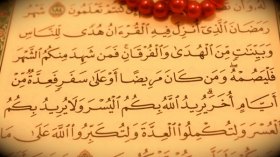 رَمَضَانَ ٱلَّذِىٓ أُنزِلَ فِيهِ ٱلْقُرْءَانُ هُدًى لِّلنَّاسِ
وَبَيِّنَٰتٍ مِّنَ ٱلْهُدَىٰ وَٱلْفُرْقَانِ فَمَن شَهِدَ مِنكُمُ ٱلشَّهْرَ
فَلْيَصُمْهُ وَمَن كَانَ مَرِيضًا أَوْ عَلَىٰ سَفَرٍ فَعِدَّةٌ مِّنْ
أَيَّامٍ أُخَرَ يُرِيدُ ٱللَّهُ بِكُمُ ٱلْيُسْرَ وَلَا يُرِيدُ بِكُمُ
ٱلْعُسْرَ وَلِتُكْمِلُوا۟ ٱلْعِدَّةَ وَلِتُكَبِّرُوا۟ ٱللَّهَ عَلَىٰ